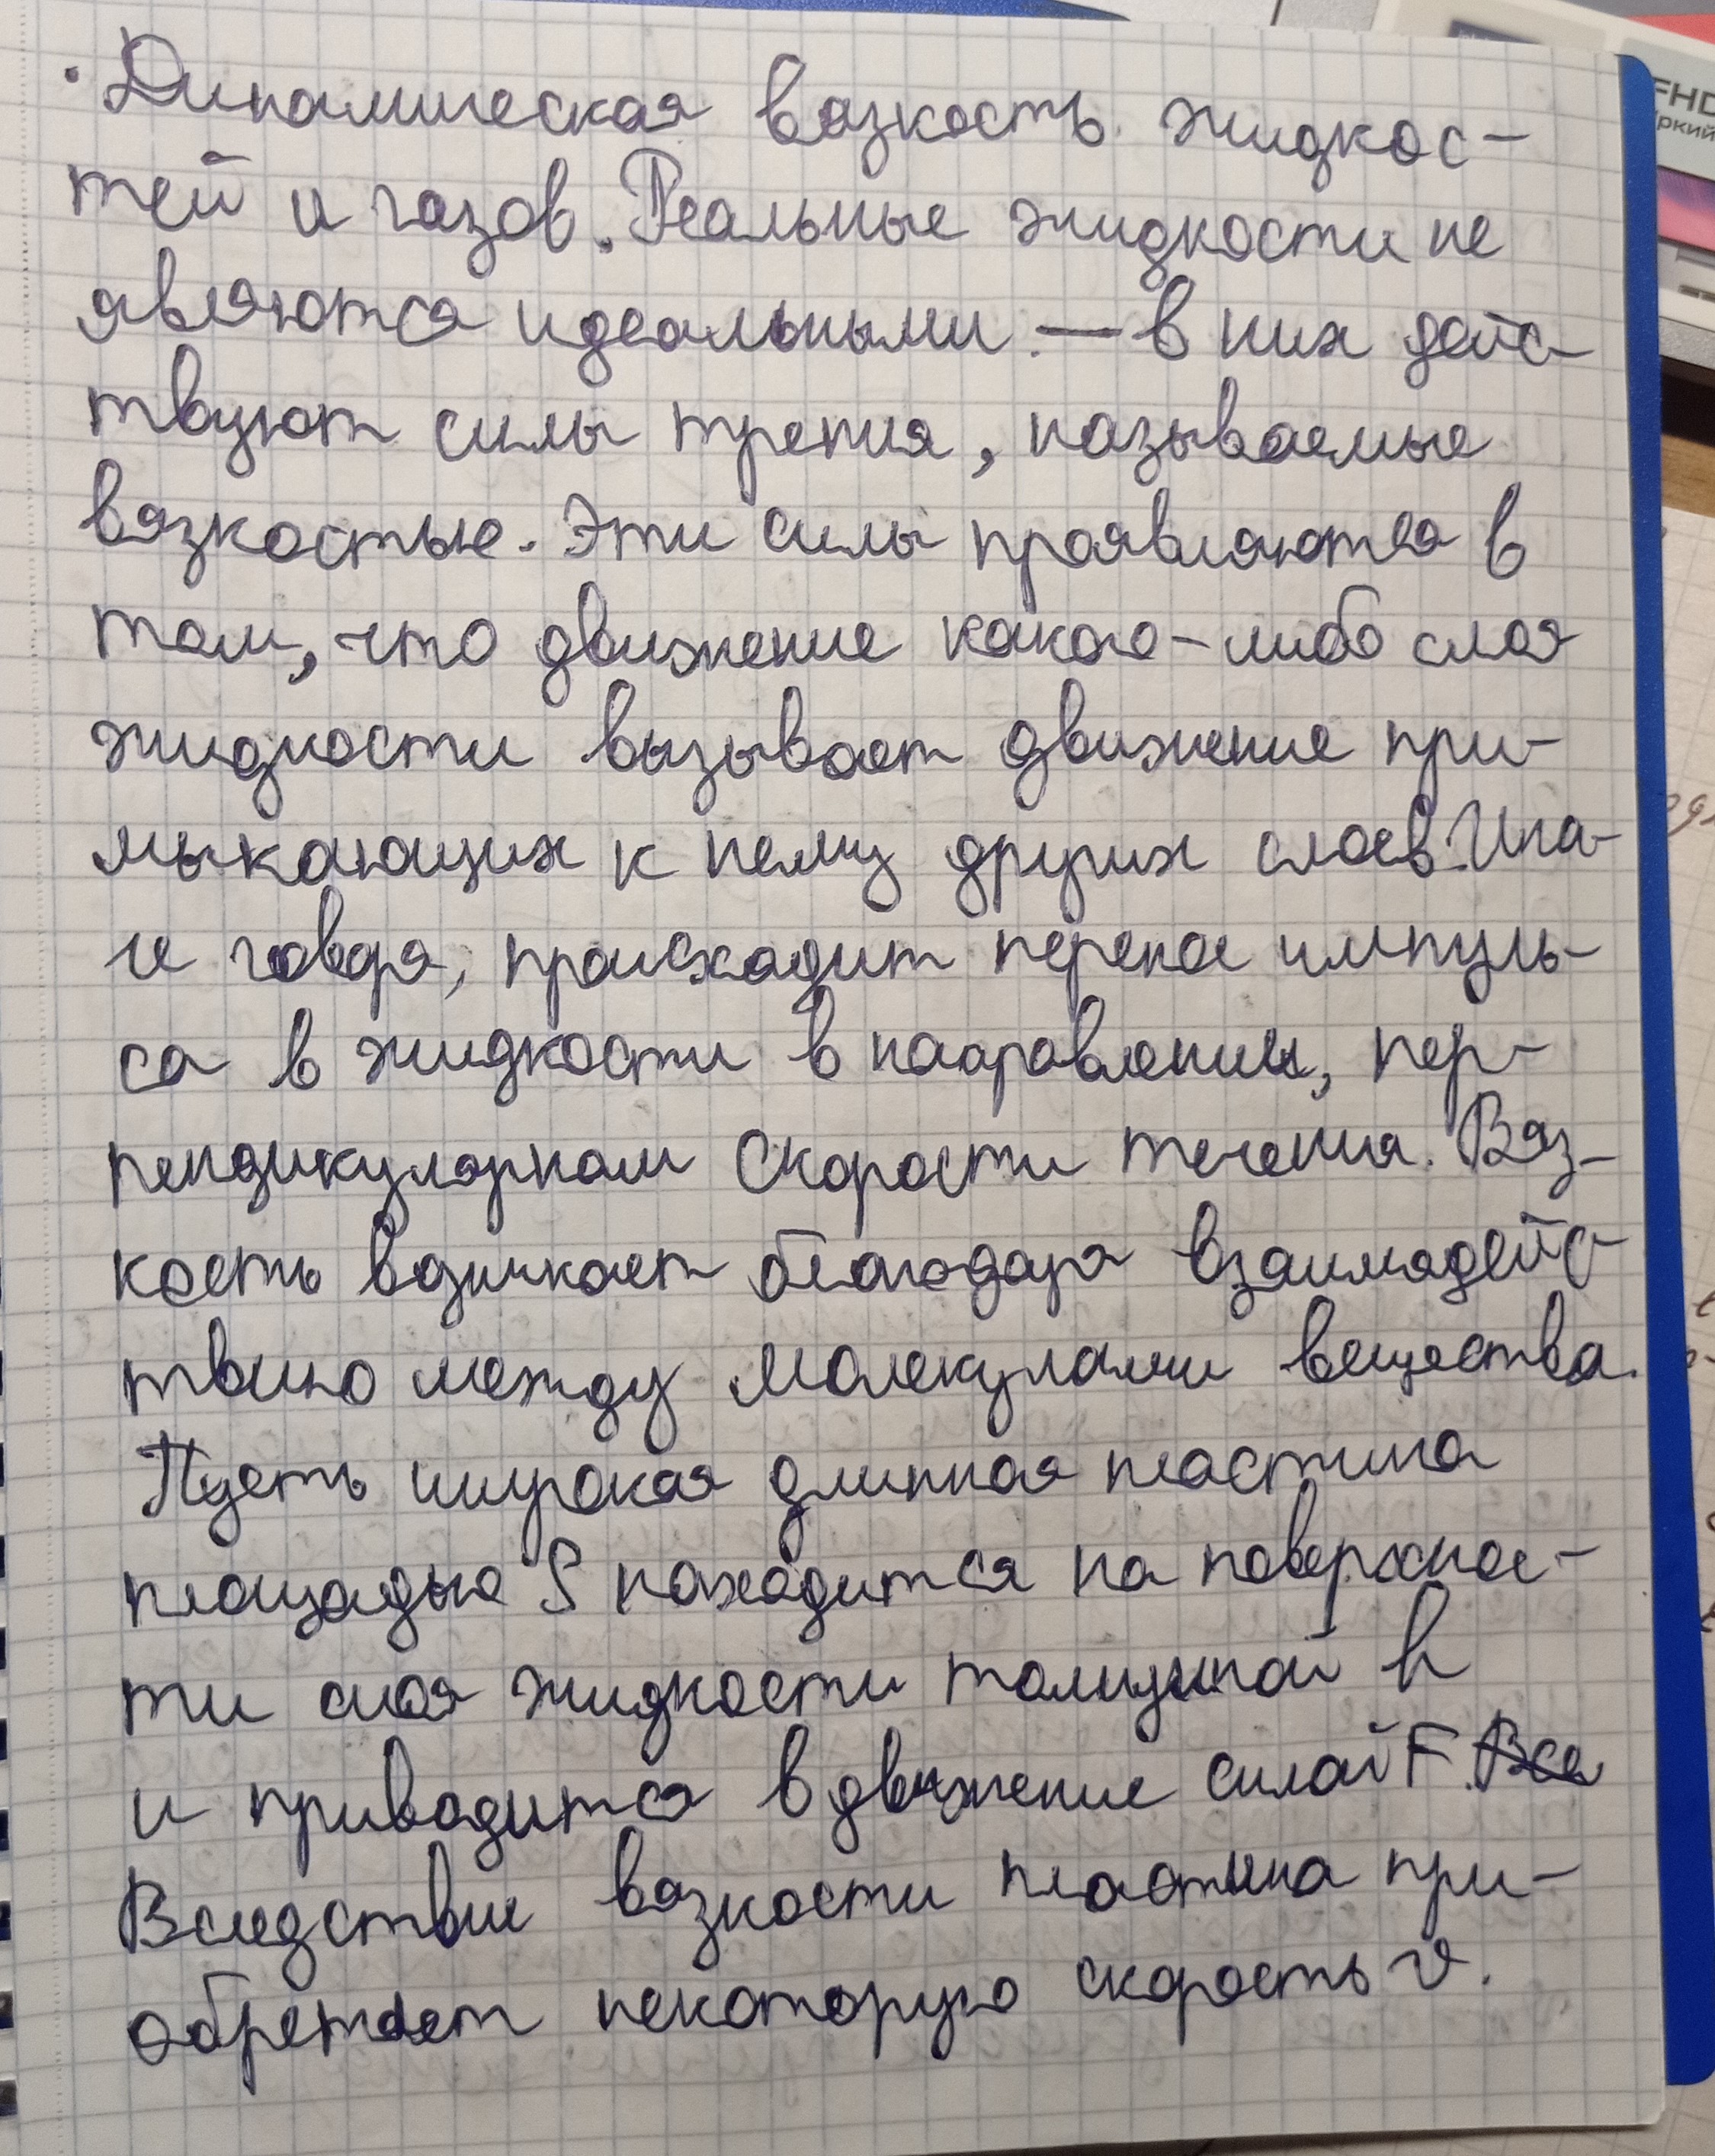 · Динамическая вязкость жидкос-
тей и газов. Реальные жидкости не
являются идеальными — в них дейс-
твуют силы трения, называемые
вязкостью. Эти силы проявляются в
том, что движение какого-либо слоя
жидкости вызывает движение при-
мыкающих к нему других слоев. Ина-
че говоря, происходит перенос импуль-
са в жидкости в направлении, пер-
пендикулярном скорости течения. Вяз-
кость возникает благодаря взаимодейс-
твию между молекулами вещества.
Пусть широкая длинная пластина
площадью S находится на поверхнос-
ти слоя жидкости толщиной h
и приводится в движение силой F. Все
Вследствие вязкости пластина при-
обретает некоторую скорость v.
FHD
ркий